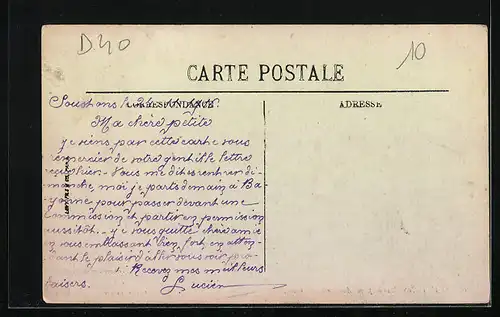 D.40
10
CARTE POSTALE
CORRESPONDANCE
ADRESSE
Soustons le
Ma chère petite
je viens par cette carte vous
remercier de votre gentille lettre
reçu hier. Vous me dites
manche, moi je parts demain à Ba-
yonne pour passer devant une
Commission et partir en permission
aussitôt. je vous quitte chère amie
en vous embrassant bien fort, en atten-
dant le plaisir d'aller vous voir
Recevez mes meilleurs
baisers. Lucien